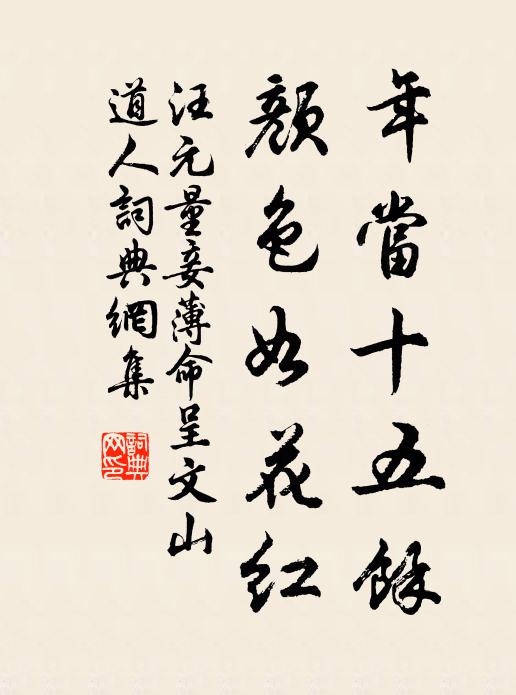 年當十五餘
顏色如花紅
汪元量妾薄命呈文山
道人詞典網集
詞典网印